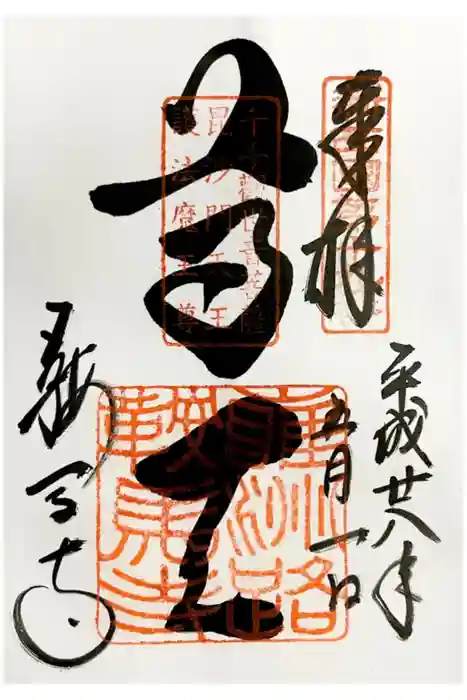 奉拝
平成廿八年
五月一日
千手観世音菩薩
毘沙門天王
護法魔王尊
尊天
鞍馬寺